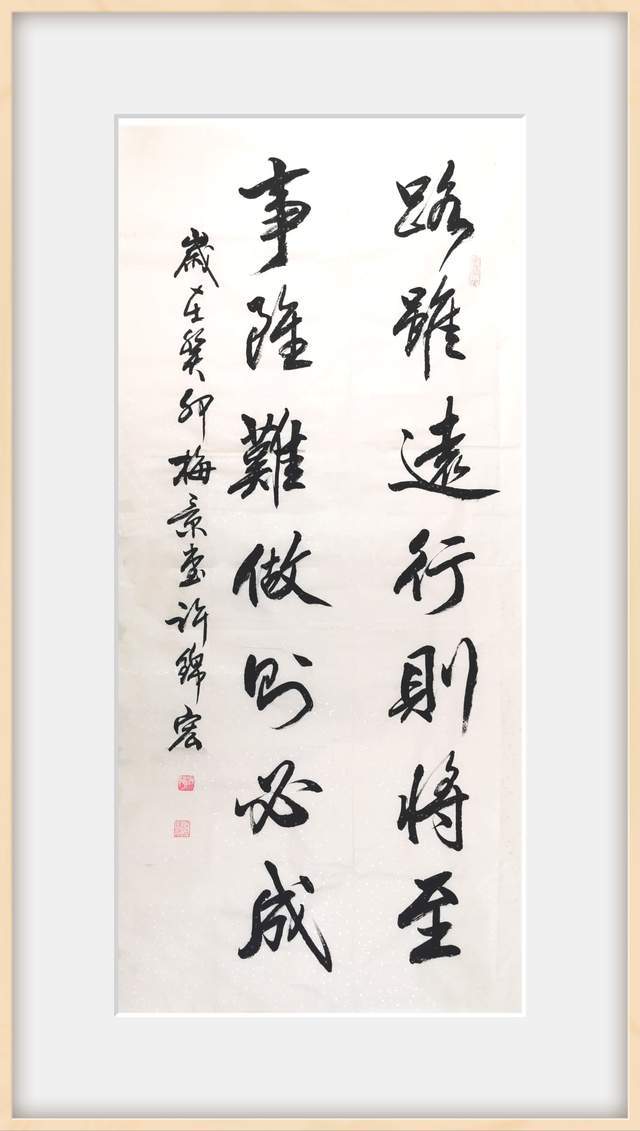 路雖遠行則將至
事雖難做則必成
歲在癸卯梅景堂許錦宏